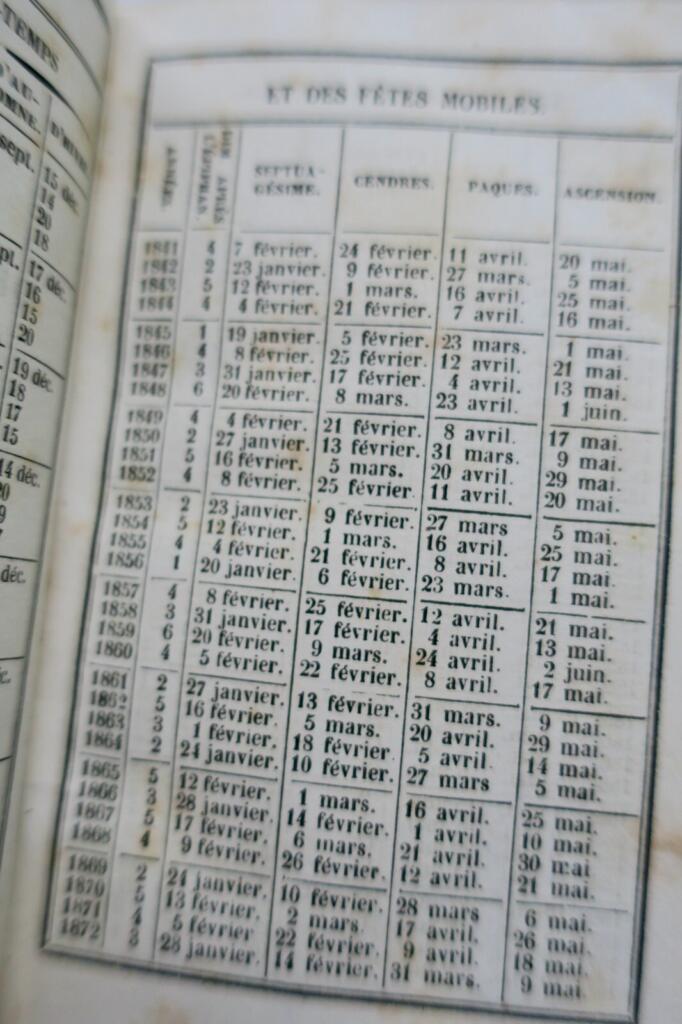 -TEMPS
D'AU-
OMNE. D'HIVER
sept. 15 déc.
14
20
18
pt. 17 déc.
16
15
20
19 déc.
18
17
15
14 déc.
déc.
ET DES FÊTES MOBILES.
ANNÉES. DIM. APRÈS L'ÉPIPHAN. SEPTUA-GÉSIME. CENDRES. PAQUES. ASCENSION.
1841 4 7 février. 24 février. 11 avril. 20 mai.
1842 2 23 janvier. 9 février. 27 mars. 5 mai.
1843 5 12 février. 1 mars. 16 avril. 25 mai.
1844 4 4 février. 21 février. 7 avril. 16 mai.
1845 1 19 janvier. 5 février. 23 mars. 1 mai.
1846 4 8 février. 25 février. 12 avril. 21 mai.
1847 3 31 janvier. 17 février. 4 avril. 13 mai.
1848 6 20 février. 8 mars. 23 avril. 1 juin.
1849 4 4 février. 21 février. 8 avril. 17 mai.
1850 2 27 janvier. 13 février. 31 mars. 9 mai.
1851 5 16 février. 5 mars. 20 avril. 29 mai.
1852 4 8 février. 25 février. 11 avril. 20 mai.
1853 2 23 janvier. 9 février. 27 mars 5 mai.
1854 5 12 février. 1 mars. 16 avril. 25 mai.
1855 4 4 février. 21 février. 8 avril. 17 mai.
1856 1 20 janvier. 6 février. 23 mars. 1 mai.
1857 4 8 février. 25 février. 12 avril. 21 mai.
1858 3 31 janvier. 17 février. 4 avril. 13 mai.
1859 6 20 février. 9 mars. 24 avril. 2 juin.
1860 4 5 février. 22 février. 8 avril. 17 mai.
1861 2 27 janvier. 13 février. 31 mars. 9 mai.
1862 5 16 février. 5 mars. 20 avril. 29 mai.
1863 3 1 février. 18 février. 5 avril. 14 mai.
1864 2 24 janvier. 10 février. 27 mars 5 mai.
1865 5 12 février. 1 mars. 16 avril. 25 mai.
1866 3 28 janvier. 14 février. 1 avril. 10 mai.
1867 5 17 février. 6 mars. 21 avril. 30 mai
1868 4 9 février. 26 février. 12 avril. 21 mai.
1869 2 24 janvier. 10 février. 28 mars 6 mai.
1870 5 13 février. 2 mars. 17 avril. 26 mai.
1871 4 5 février 22 février. 9 avril. 18 mai.
1872 3 28 janvier. 14 février. 31 mars. 9 mai.